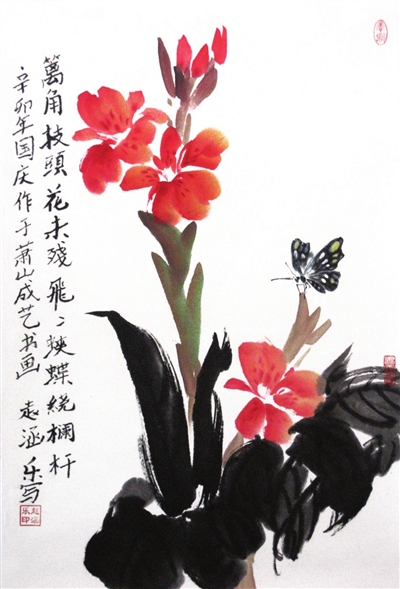 篱角枝頭花未殘飛〻蛱蝶繞欄杆
辛卯年国庆作于萧山成艺书画 志涵乐写